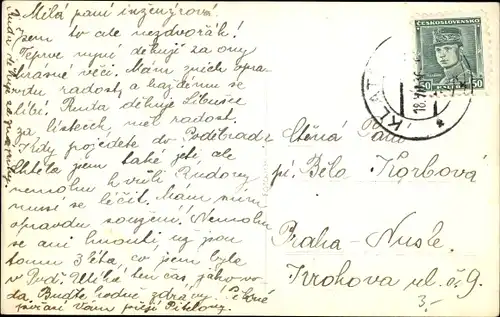 Milá paní inženýrová!
Jsem to ale nezdvořák!
Teprve nyní děkuji za ony
krásné věci. Mám z nich opra-
vdu radost a každému se
líbí. Ruda děkuje Libušce
za lísteček, měl radost.
Kdy pojedete do Poděbrad?
Chtěla jsem také jeti, ale
nemohu kvůli Rudovy
musí se léčit. Mám s ním
opravdu soužení! Nemohu
se ani hnouti, už jsou
tomu 3 léta, co jsem byla
v Poď. Utíká ten čas, jako vo-
da. Buďte hodně zdrávy! Pěkné
pozdrav Vám píší
Ruda děkuje za
ČESKOSLOVENSKO
50
KLAT
18.VII.
Ctěná Paní
pí. Běla Korbová
Praha-Nusle
Krokova ul. č. 9.
3.-